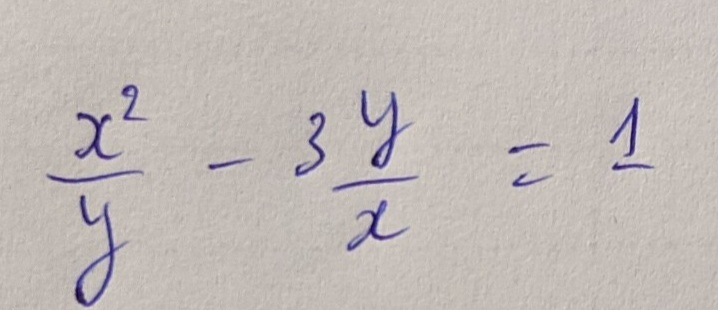 x²/y - 3 y/x = 1